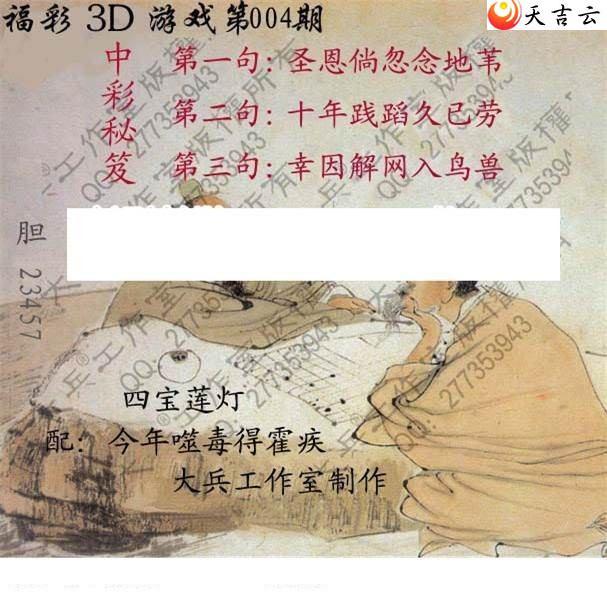 福彩 3D 游戏第004期
天吉云
中彩秘笈
第一句：圣恩倘忽念地苇
第二句：十年践蹈久已劳
第三句：幸因解网入鸟兽
胆 23457
四宝莲灯
配：今年噬毒得霍疾
大兵工作室制作
大兵®工作室版权所有
QQ：277353943